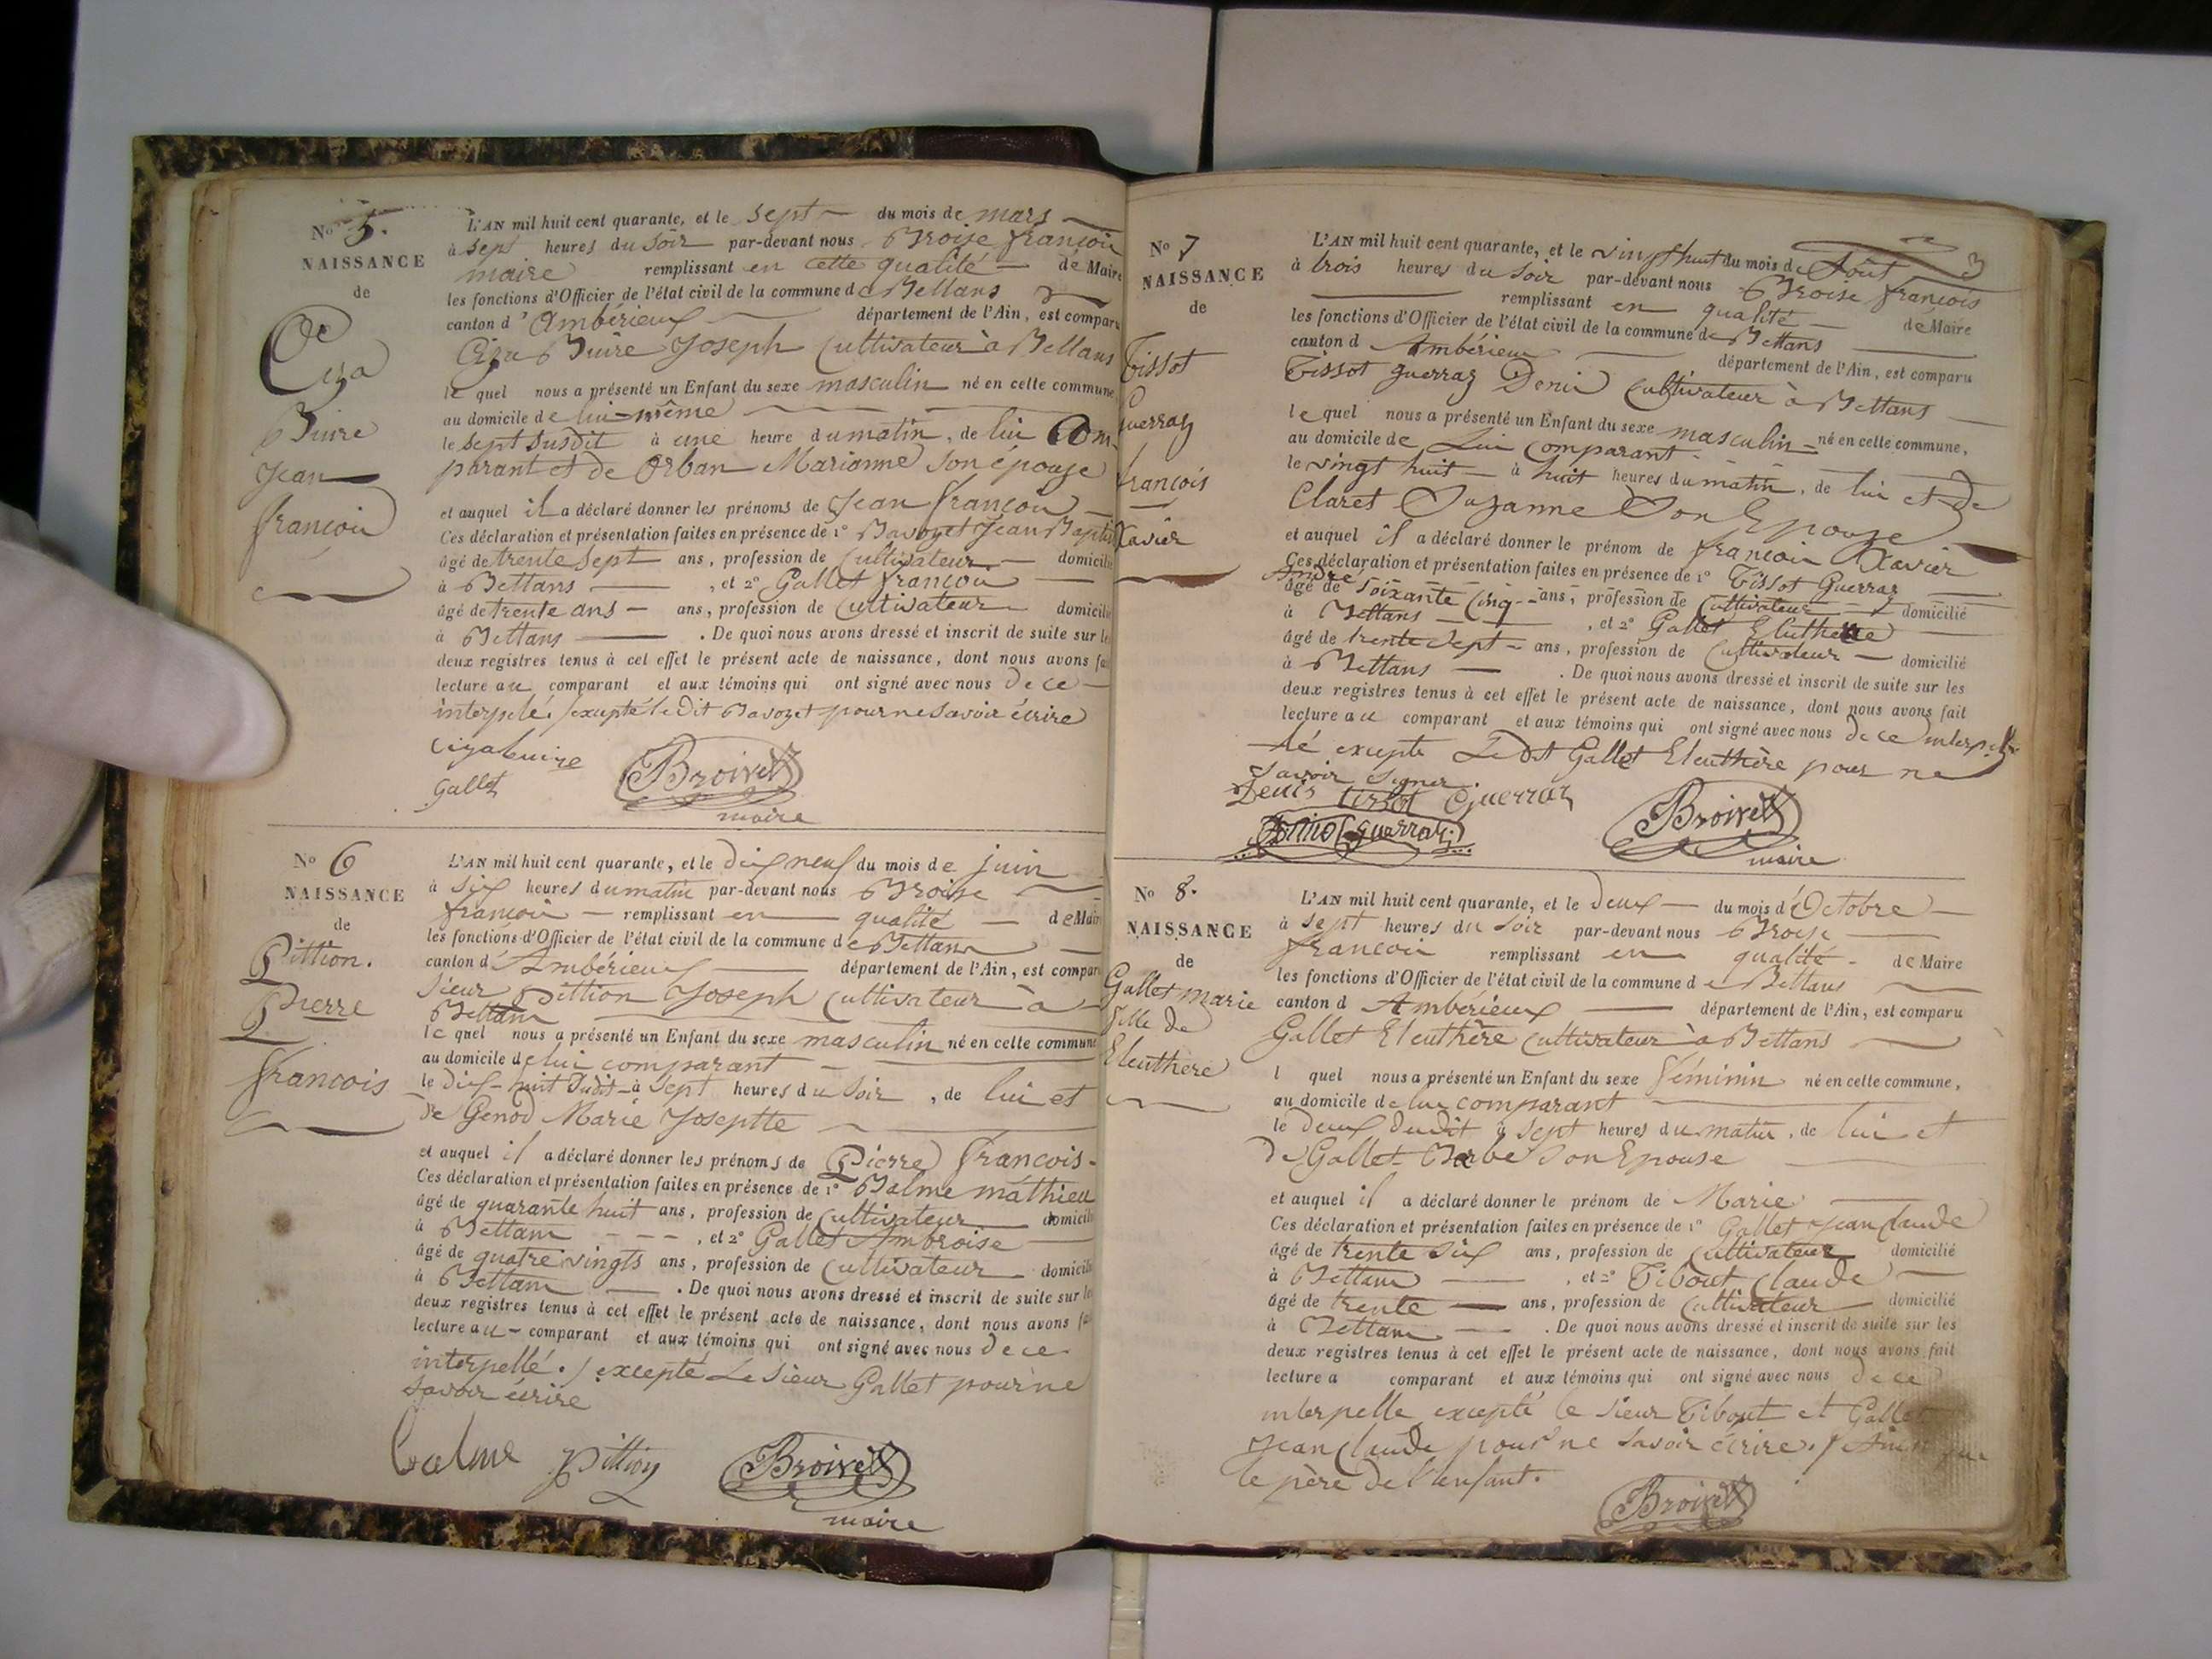 No 5.
NAISSANCE
de
Ciza
Buire
Jean
françois
L'AN mil huit cent quarante, et le sept du mois de mars
à sept heures du soir par-devant nous Broise françois
maire remplissant en cette qualité de Maire
les fonctions d'Officier de l'état civil de la commune de Bettans
canton d'Ambérieux département de l'Ain, est comparu
Ciza Buire Joseph Cultivateur à Bettans
le quel nous a présenté un Enfant du sexe masculin né en cette commune
au domicile de lui-même
le sept susdit à une heure du matin, de lui Com-
parant et de Orban Marianne son épouse
et auquel il a déclaré donner les prénoms de Jean françois
Ces déclaration et présentation faites en présence de 1° Bavozet Jean Baptis
âgé de trente sept ans, profession de Cultivateur domicilié
à Bettans, et 2° Gallet françois
âgé de trente ans ans, profession de Cultivateur domicilié
à Bettans. De quoi nous avons dressé et inscrit de suite sur le
deux registres tenus à cet effet le présent acte de naissance, dont nous avons fai
lecture au comparant et aux témoins qui ont signé avec nous de ce
interpelé. / excepté le dit Bavozet pour ne savoir écrire
Cizabuire
Gallet
Broise
maire
No 6
NAISSANCE
de
Pittion.
Pierre
françois
L'AN mil huit cent quarante, et le dix neuf du mois de juin
à six heures du matin par-devant nous Broise
françois remplissant en qualité de Maire
les fonctions d'Officier de l'état civil de la commune de Bettans
canton d'Ambérieux département de l'Ain, est comparu
Sieur Pittion Joseph Cultivateur à
Bettans
le quel nous a présenté un Enfant du sexe masculin né en cette commune
au domicile de lui comparant
le dix-huit dudit à sept heures du soir, de lui et
de Genod Marie Joseptte
et auquel il a déclaré donner les prénoms de Pierre françois.
Ces déclaration et présentation faites en présence de 1° Balme mathieu
âgé de quarante huit ans, profession de Cultivateur domicilié
à Bettans - - -, et 2° Gallet Ambroise
âgé de quatre vingts ans, profession de Cultivateur domicilié
à Bettans. De quoi nous avons dressé et inscrit de suite sur le
deux registres tenus à cet effet le présent acte de naissance, dont nous avons fai
lecture au comparant et aux témoins qui ont signé avec nous de ce
interpellé. / excepté Le sieur Gallet pour ne
savoir écrire
balme pittion Broise
maire
3
No 7
NAISSANCE
de
Tissot
Guerraz
françois
Xavier
L'AN mil huit cent quarante, et le vingt huit du mois de Août
à trois heures du soir par-devant nous Broise françois
remplissant en qualité de Maire
les fonctions d'Officier de l'état civil de la commune de Bettans
canton d Ambérieux département de l'Ain, est comparu
Tissot guerraz Denis Cultivateur à Bettans
le quel nous a présenté un Enfant du sexe masculin né en cette commune,
au domicile de Lui comparant
le vingt huit à huit heures du matin, de lui et de
Claret Suzanne Son Epouse
et auquel il a déclaré donner le prénom de françois Xavier
Ces déclaration et présentation faites en présence de 1° Tissot Guerraz
André
âgé de soixante Cinq ans, profession de Cultivateur domicilié
à Bettans, et 2° Gallet Eluthere
âgé de trente sept ans, profession de Cultivateur domicilié
à Bettans. De quoi nous avons dressé et inscrit de suite sur les
deux registres tenus à cet effet le présent acte de naissance, dont nous avons fait
lecture au comparant et aux témoins qui ont signé avec nous de ce interpel
lé excepte Ledit Gallet Eleuthère pour ne
savoir signer
Denis tissot Guerraz
guerraz
Broise
maire
No 8.
NAISSANCE
de
Gallet marie
fille de
Eleuthere
L'AN mil huit cent quarante, et le deux du mois d'Octobre
à sept heures du soir par-devant nous Broise
françois remplissant en qualité de Maire
les fonctions d'Officier de l'état civil de la commune de Bettans
canton d Ambérieux département de l'Ain, est comparu
Gallet Eleuthère Cultivateur à Bettans
l quel nous a présenté un Enfant du sexe féminin né en cette commune,
au domicile de lui comparant
le deux dudit à sept heures du matin, de lui et
de Gallet Barbe son Epouse
et auquel il a déclaré donner le prénom de Marie
Ces déclaration et présentation faites en présence de 1° Gallet Jean Claude
âgé de trente six ans, profession de Cultivateur domicilié
à Bettans, et 2° Tibout Claude
âgé de trente ans, profession de Cultivateur domicilié
à Bettans. De quoi nous avons dressé et inscrit de suite sur les
deux registres tenus à cet effet le présent acte de naissance, dont nous avons fait
lecture a comparant et aux témoins qui ont signé avec nous de ce
interpelle excepté le sieur Tibout et Gallet
Jean Claude pour ne savoir écrire. / Ainsi que
le père de l'enfant.
Broise